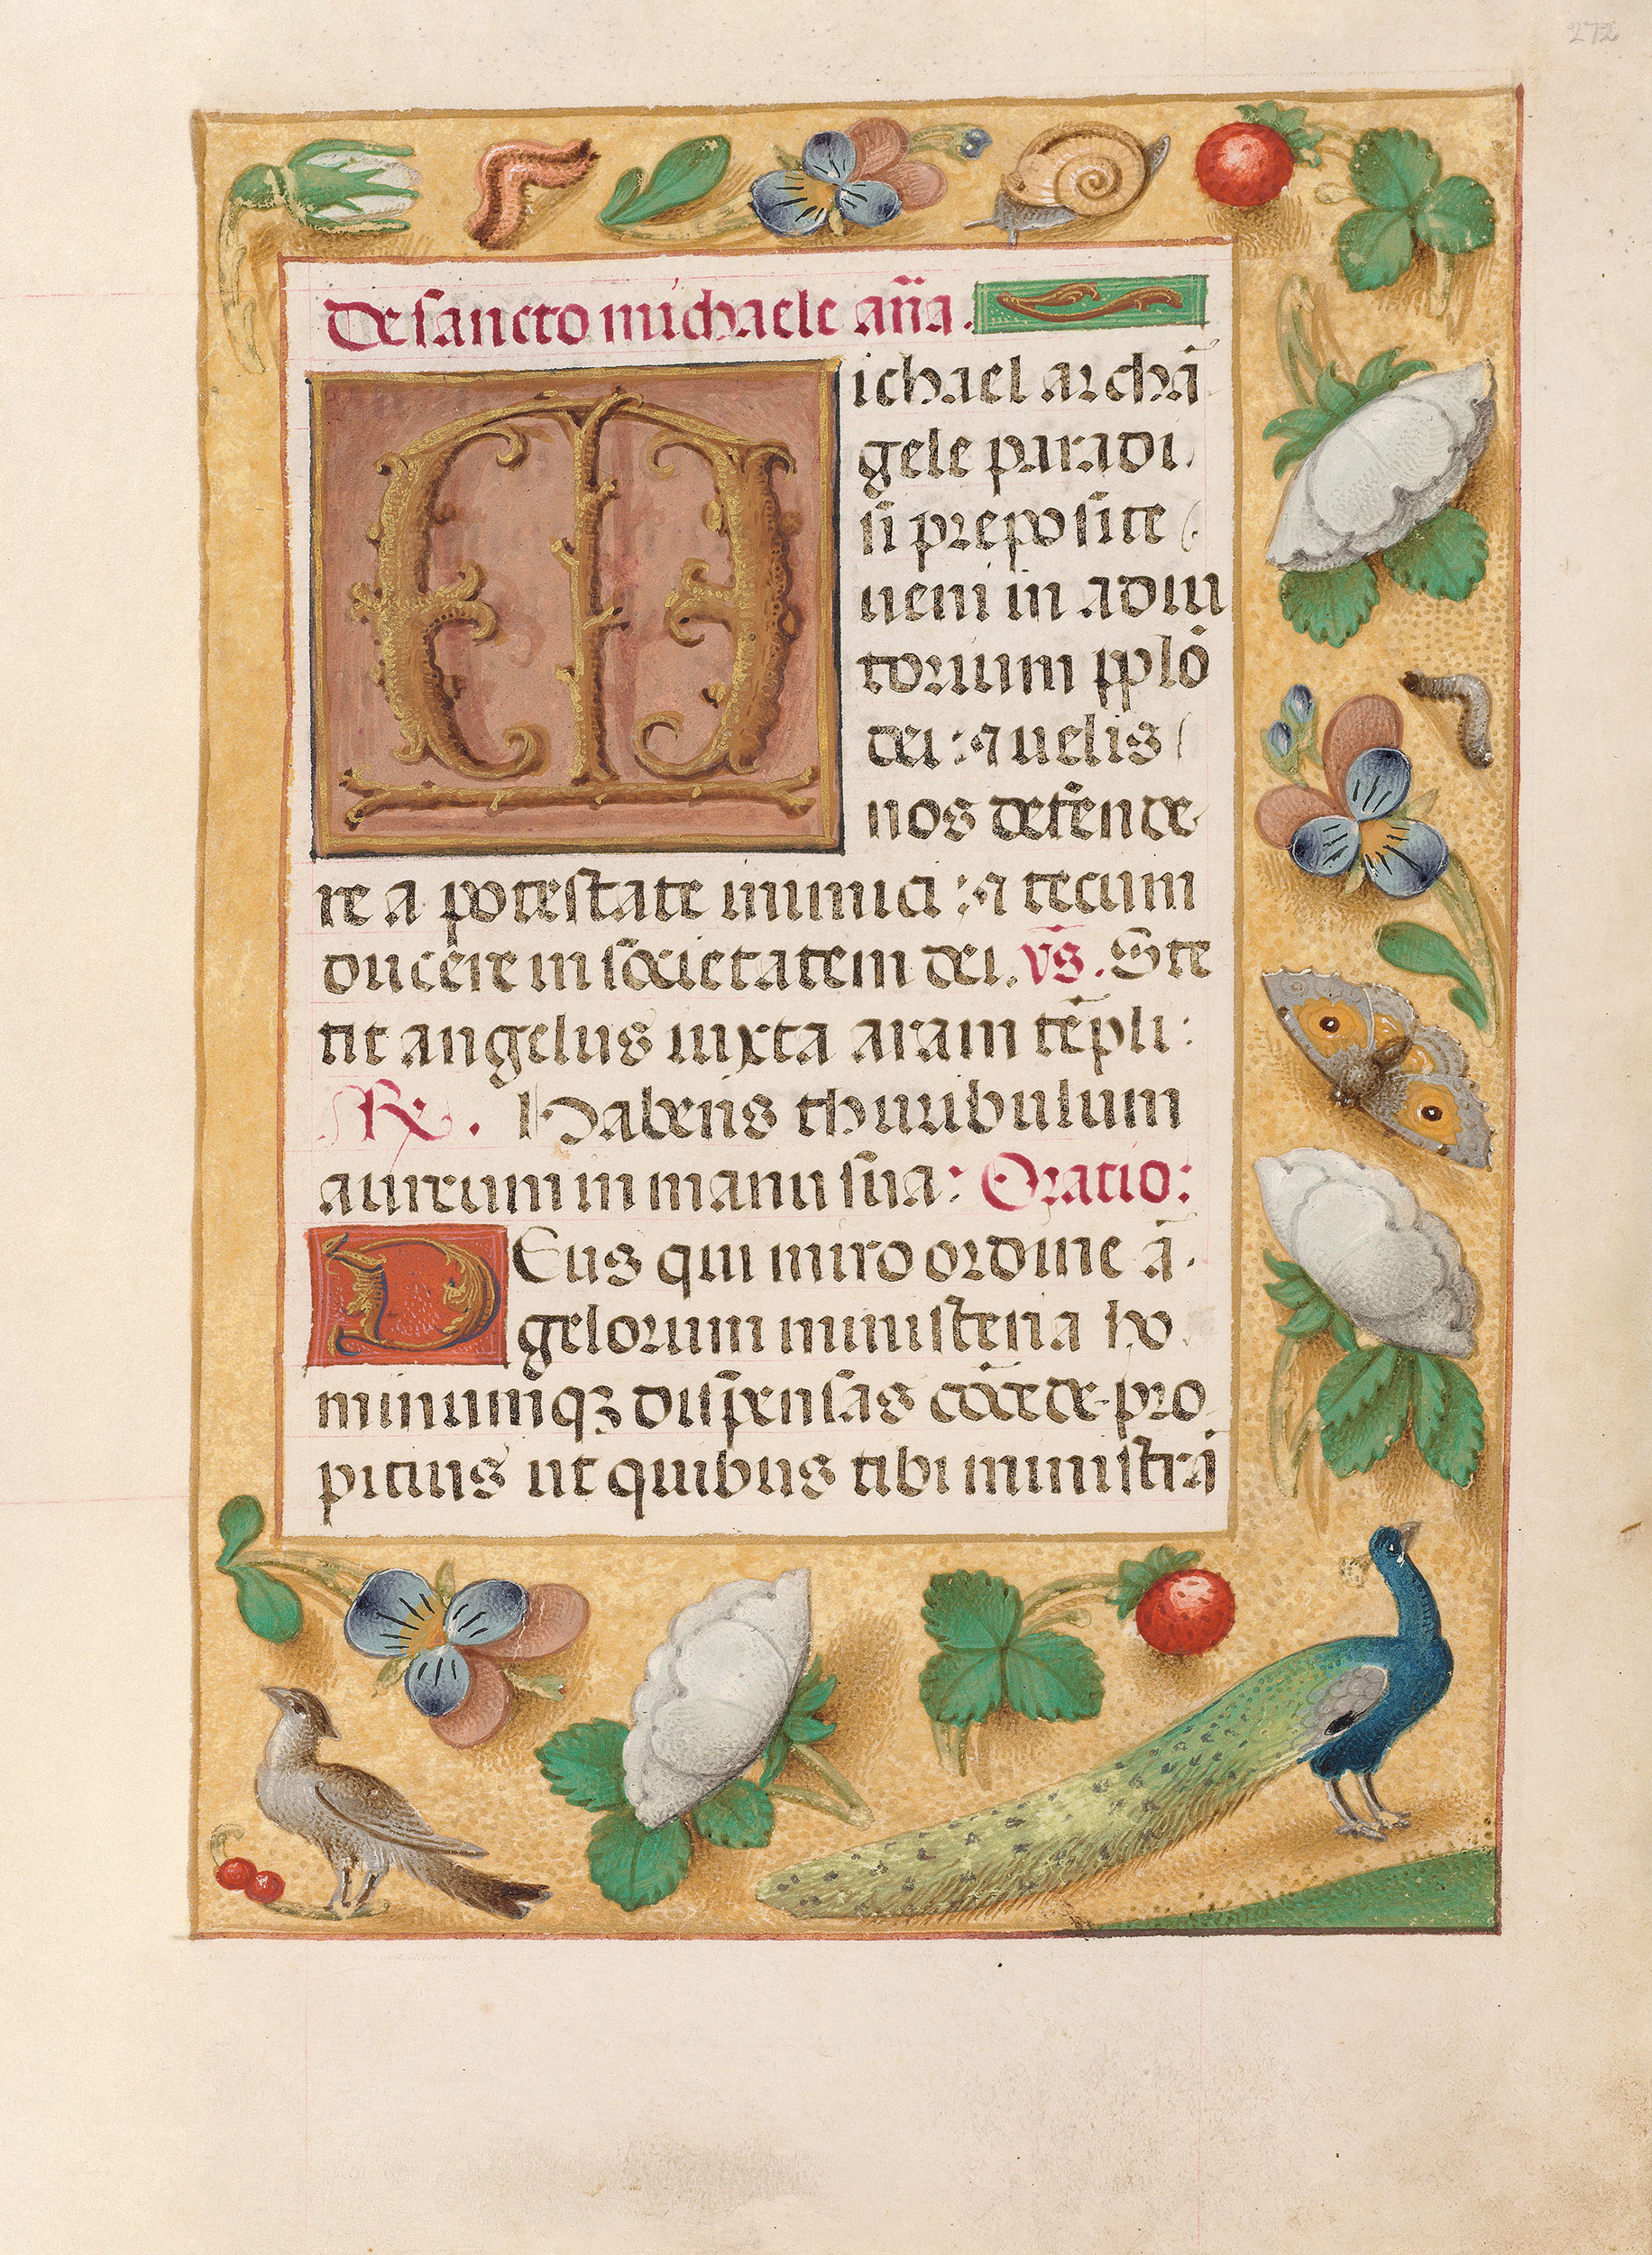 272
De sancto michaele aña.
Michael archā
gele paradi
si preposite
ueni in adiu
torium pplō
dei : ⁊ uelis
nos defende
re a potestate inimici : ⁊ tecum
ducere in societatem dei. v̄s. Ste
tit angelus iuxta aram tēpli :
℞. Habens thuribulum
aureum in manu sua : Oratio :
DEus qui miro ordine ā
gelorum ministeria ho
minumqꝫ dispensas cōcede pro
pitius ut quibus tibi ministrā